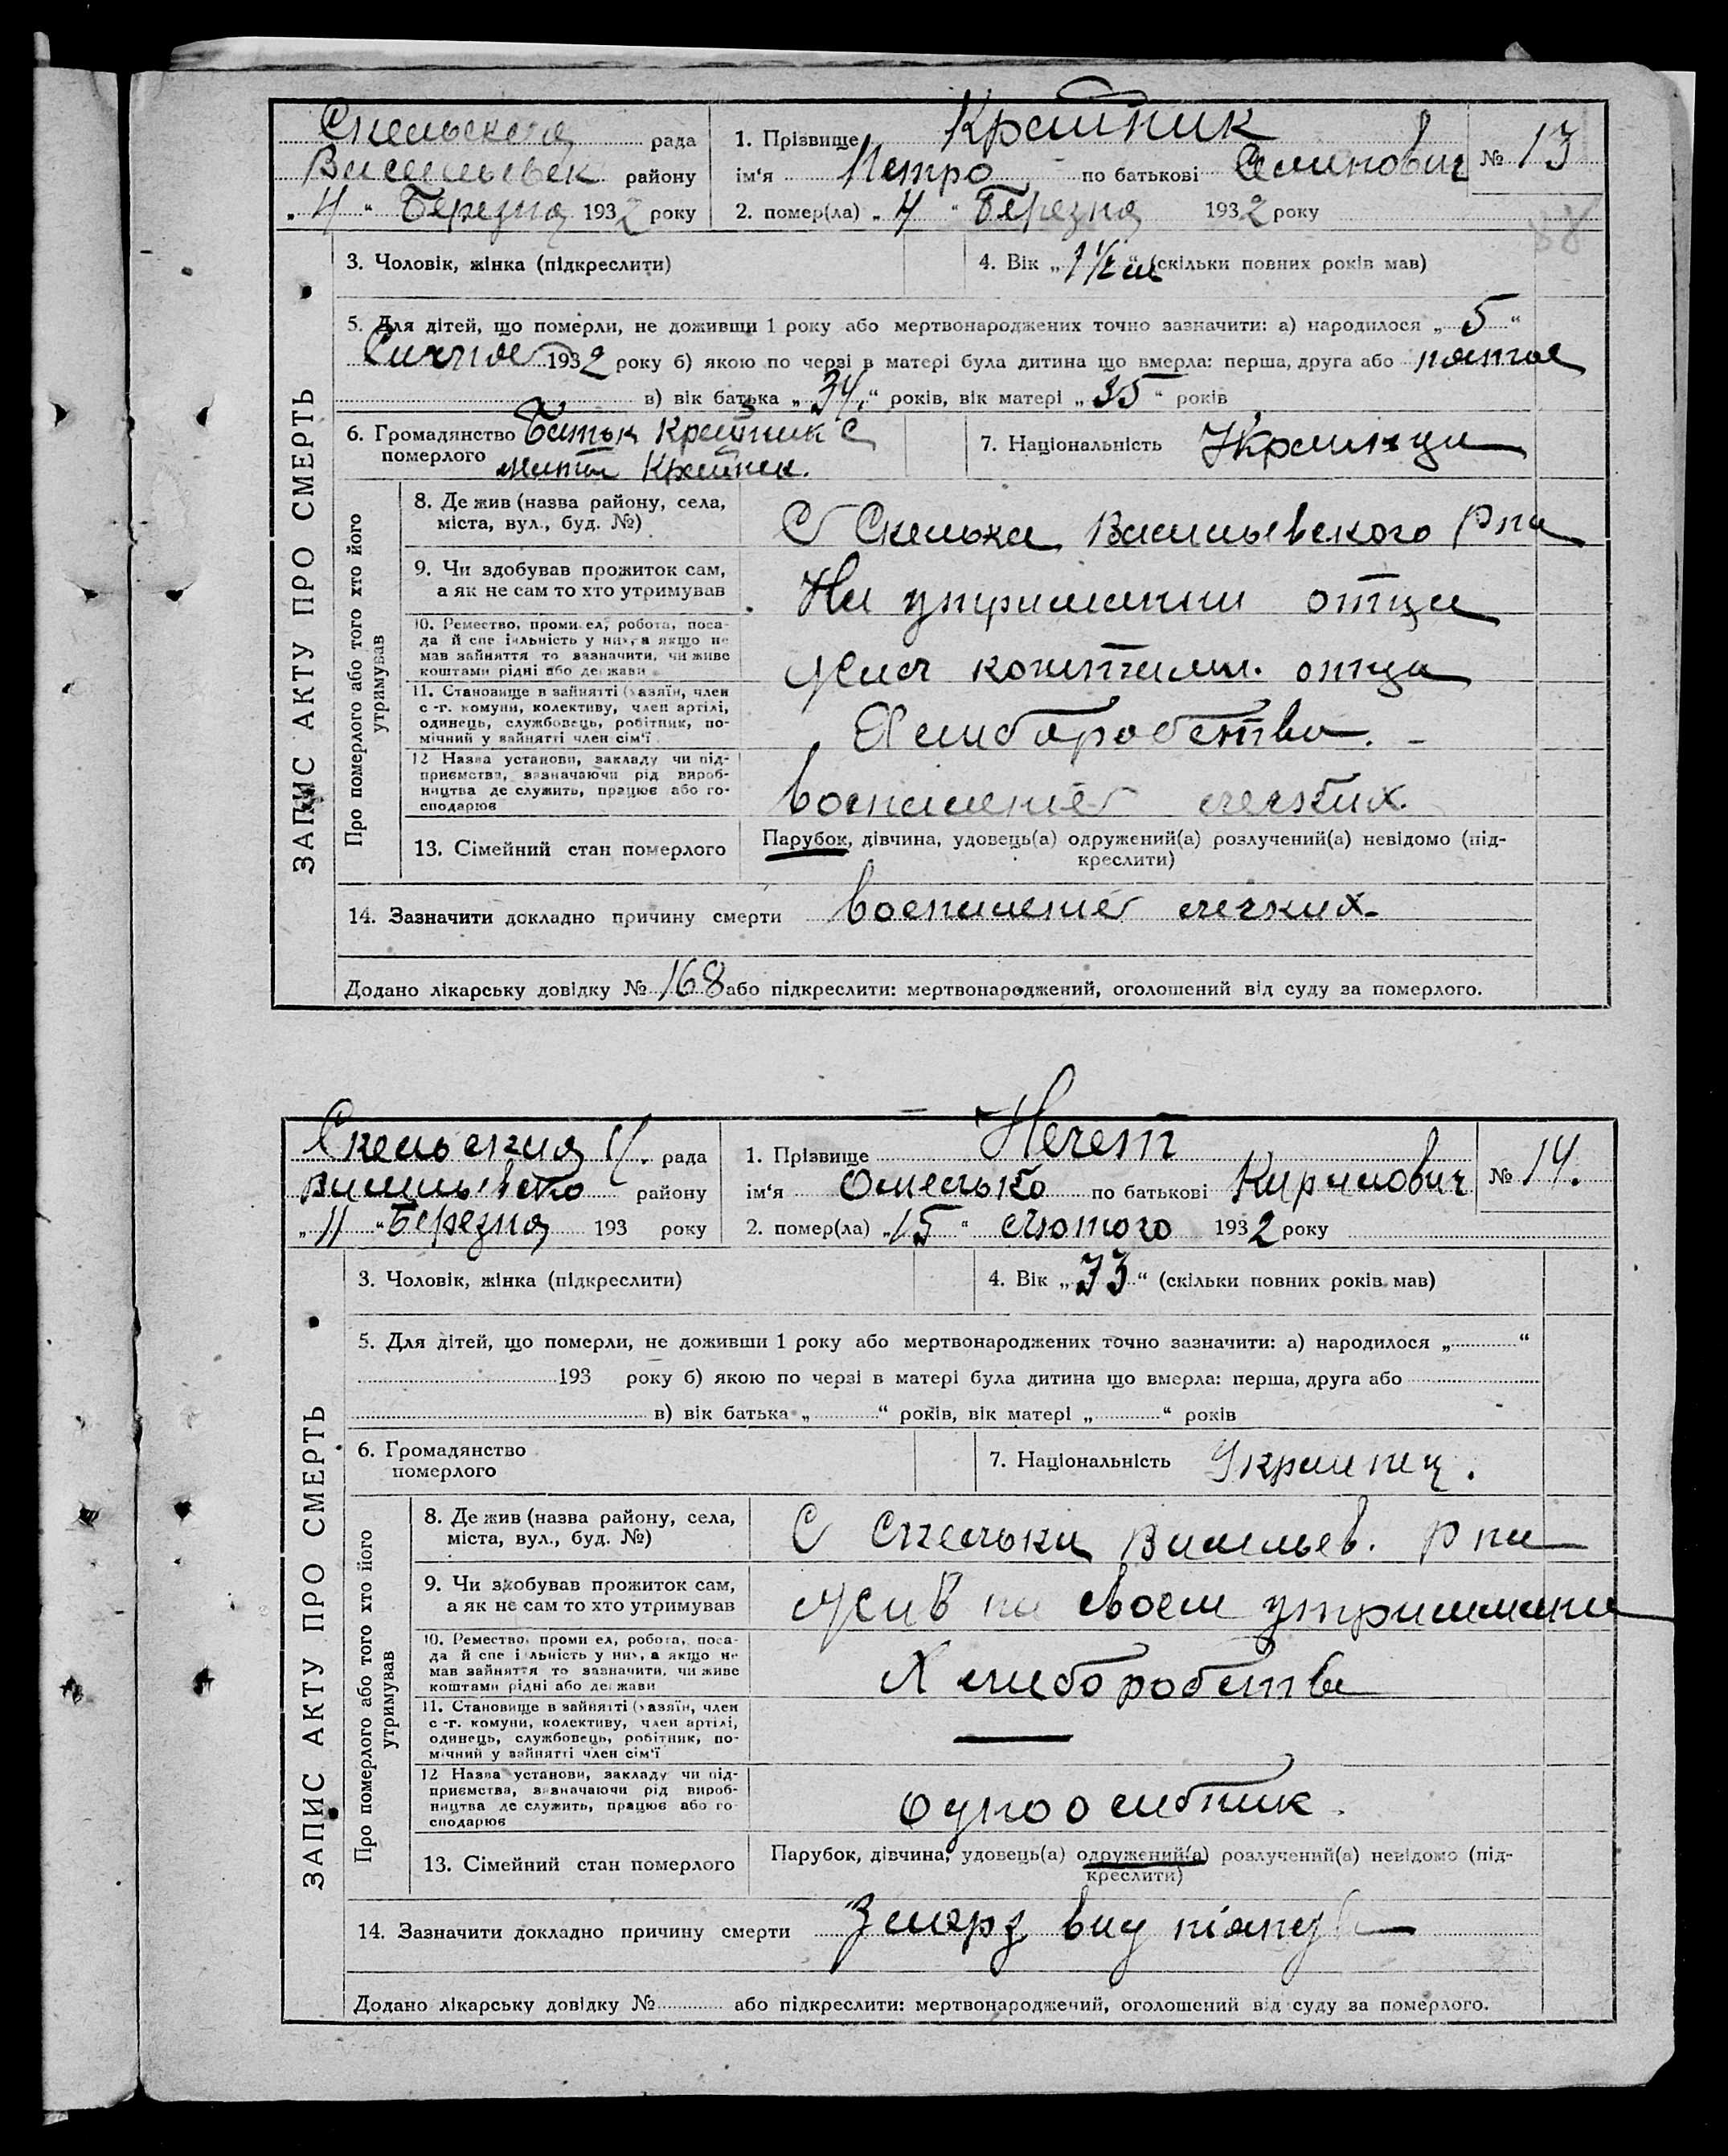 Скельская рада
Васильевск району
„4“ Березня 1932 року
1. Прізвище Крайник
ім‘я Петро по батькові
№ 13
2. помер(ла) „4“ Березня 1932 року
3. Чоловік, жінка (підкреслити)
4. Вік „1½ м“ (скільки повних років мав)
5. Для дітей, що померли, не доживши 1 року або мертвонароджених точно зазначити: а) народилося „5“
Сичня 1932 року б) якою по черзі в матері була дитина що вмерла: перша, друга або пятая
в) вік батька „34“ років, вік матері „35“ років
6. Громадянство померлого Батьк Крайник С
мати Крайник.
7. Національність Украинци
ЗАПИС АКТУ ПРО СМЕРТЬ
Про померлого або того хто його утримував
8. Де жив (назва району, села,
міста, вул., буд. №)
С Скелька Васильевского Рна
9. Чи здобував прожиток сам,
а як не сам то хто утримував
На утримании отца
10. Ремество, промисел, робота, поса-
да й спеціяльність у них, а якщо не
мав зайняття то зазначити, чи живе
коштами рідні або держави
Жил коштами отца
11. Становище в зайнятті (хазяїн, член
с-г. комуни, колективу, член артілі,
одинець, службовець, робітник, по-
мічний у зайнятті член сім‘ї
Хлиборобство.
12 Назва установи, закладу чи під-
приємства, зазначаючи рід вироб-
ництва де служить, працює або го-
сподарює
Воспаление легких.
13. Сімейний стан померлого
Парубок, дівчина, удовець(а) одружений(а) розлучений(а) невідомо (під-
креслити)
14. Зазначити докладно причину смерти Воспаление легких.
Додано лікарську довідку № 168 або підкреслити: мертвонароджений, оголошений від суду за померлого.
Скельская С. рада
Васильевско району
„11“ Березня 193 року
1. Прізвище Нечет
ім‘я Омелько по батькові Кирилович
№ 14.
2. помер(ла) „15“ лютого 1932 року
3. Чоловік, жінка (підкреслити)
4. Вік „33“ (скільки повних років мав)
5. Для дітей, що померли, не доживши 1 року або мертвонароджених точно зазначити: а) народилося „ “
193 року б) якою по черзі в матері була дитина що вмерла: перша, друга або
в) вік батька „ “ років, вік матері „ “ років
6. Громадянство
померлого
7. Національність Украинец.
ЗАПИС АКТУ ПРО СМЕРТЬ
Про померлого або того хто його утримував
8. Де жив (назва району, села,
міста, вул., буд. №)
С Скелька Васильев. Рна
9. Чи здобував прожиток сам,
а як не сам то хто утримував
Жив на своем утримании
10. Ремество, промисел, робота, поса-
да й спеціяльність у них, а якщо не
мав зайняття то зазначити, чи живе
коштами рідні або держави
Хлиборобства
11. Становище в зайнятті (хазяїн, член
с-г. комуни, колективу, член артілі,
одинець, службовець, робітник, по-
мічний у зайнятті член сім‘ї
12 Назва установи, закладу чи під-
приємства, зазначаючи рід вироб-
ництва де служить, працює або го-
сподарює
Одноосибник.
13. Сімейний стан померлого
Парубок, дівчина, удовець(а) одружений(а) розлучений(а) невідомо (під-
креслити)
14. Зазначити докладно причину смерти Змерз
Додано лікарську довідку № або підкреслити: мертвонароджений, оголошений від суду за померлого.